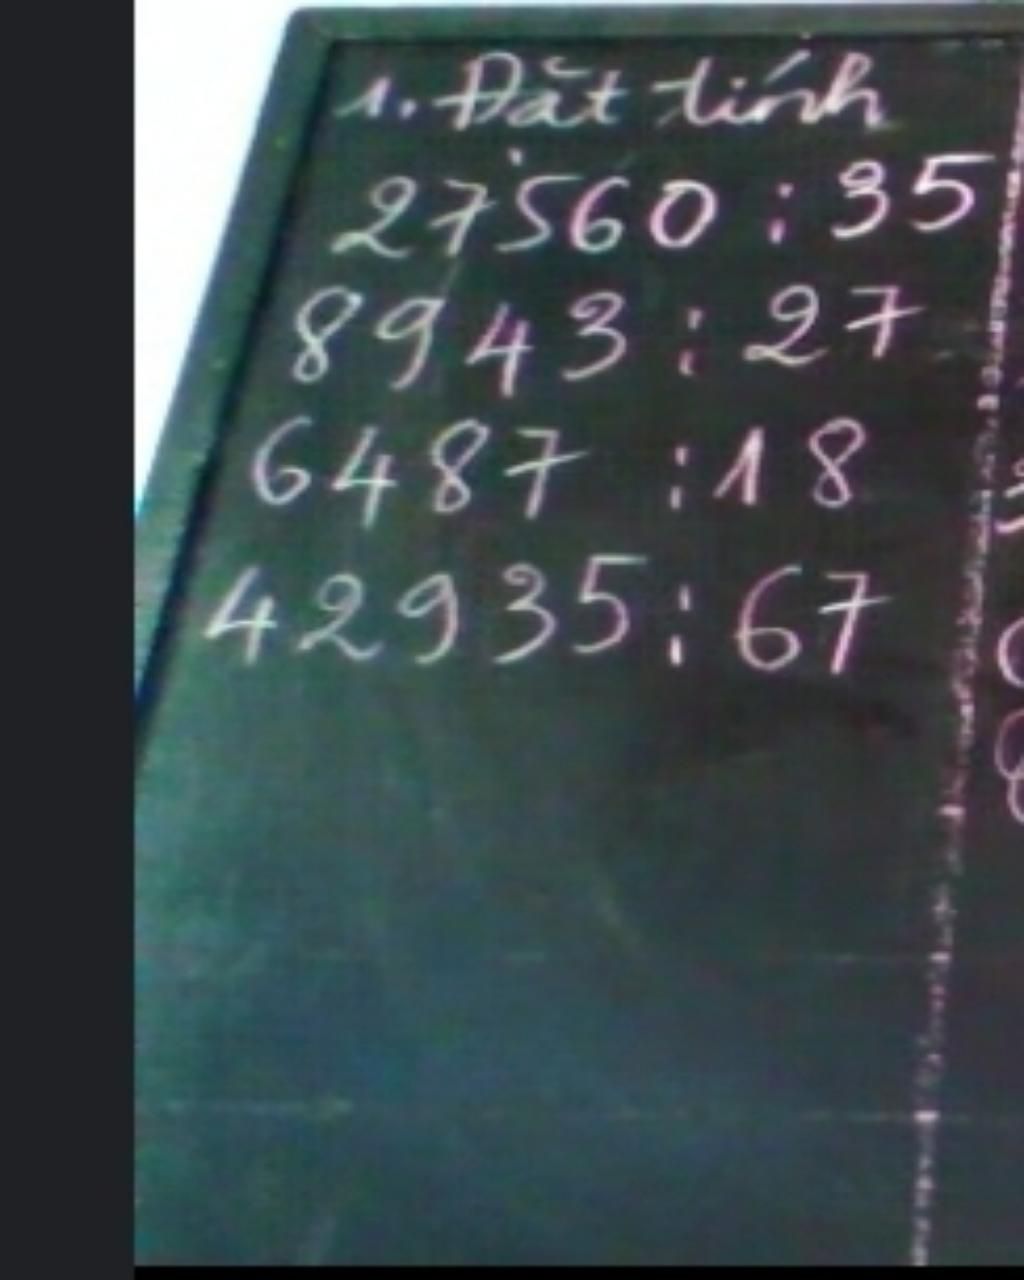 1. Đặt tính
27560 : 35
8943 : 27
6487 : 18
42935 : 67